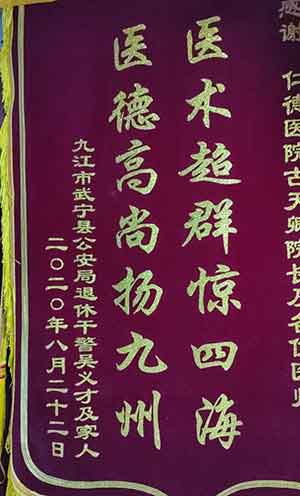 感谢
仁德医院古天卿院长
医术超群惊四海
医德高尚扬九州
九江市武宁县公安局退休干警吴义才及家人
二〇二〇年八月二十二日